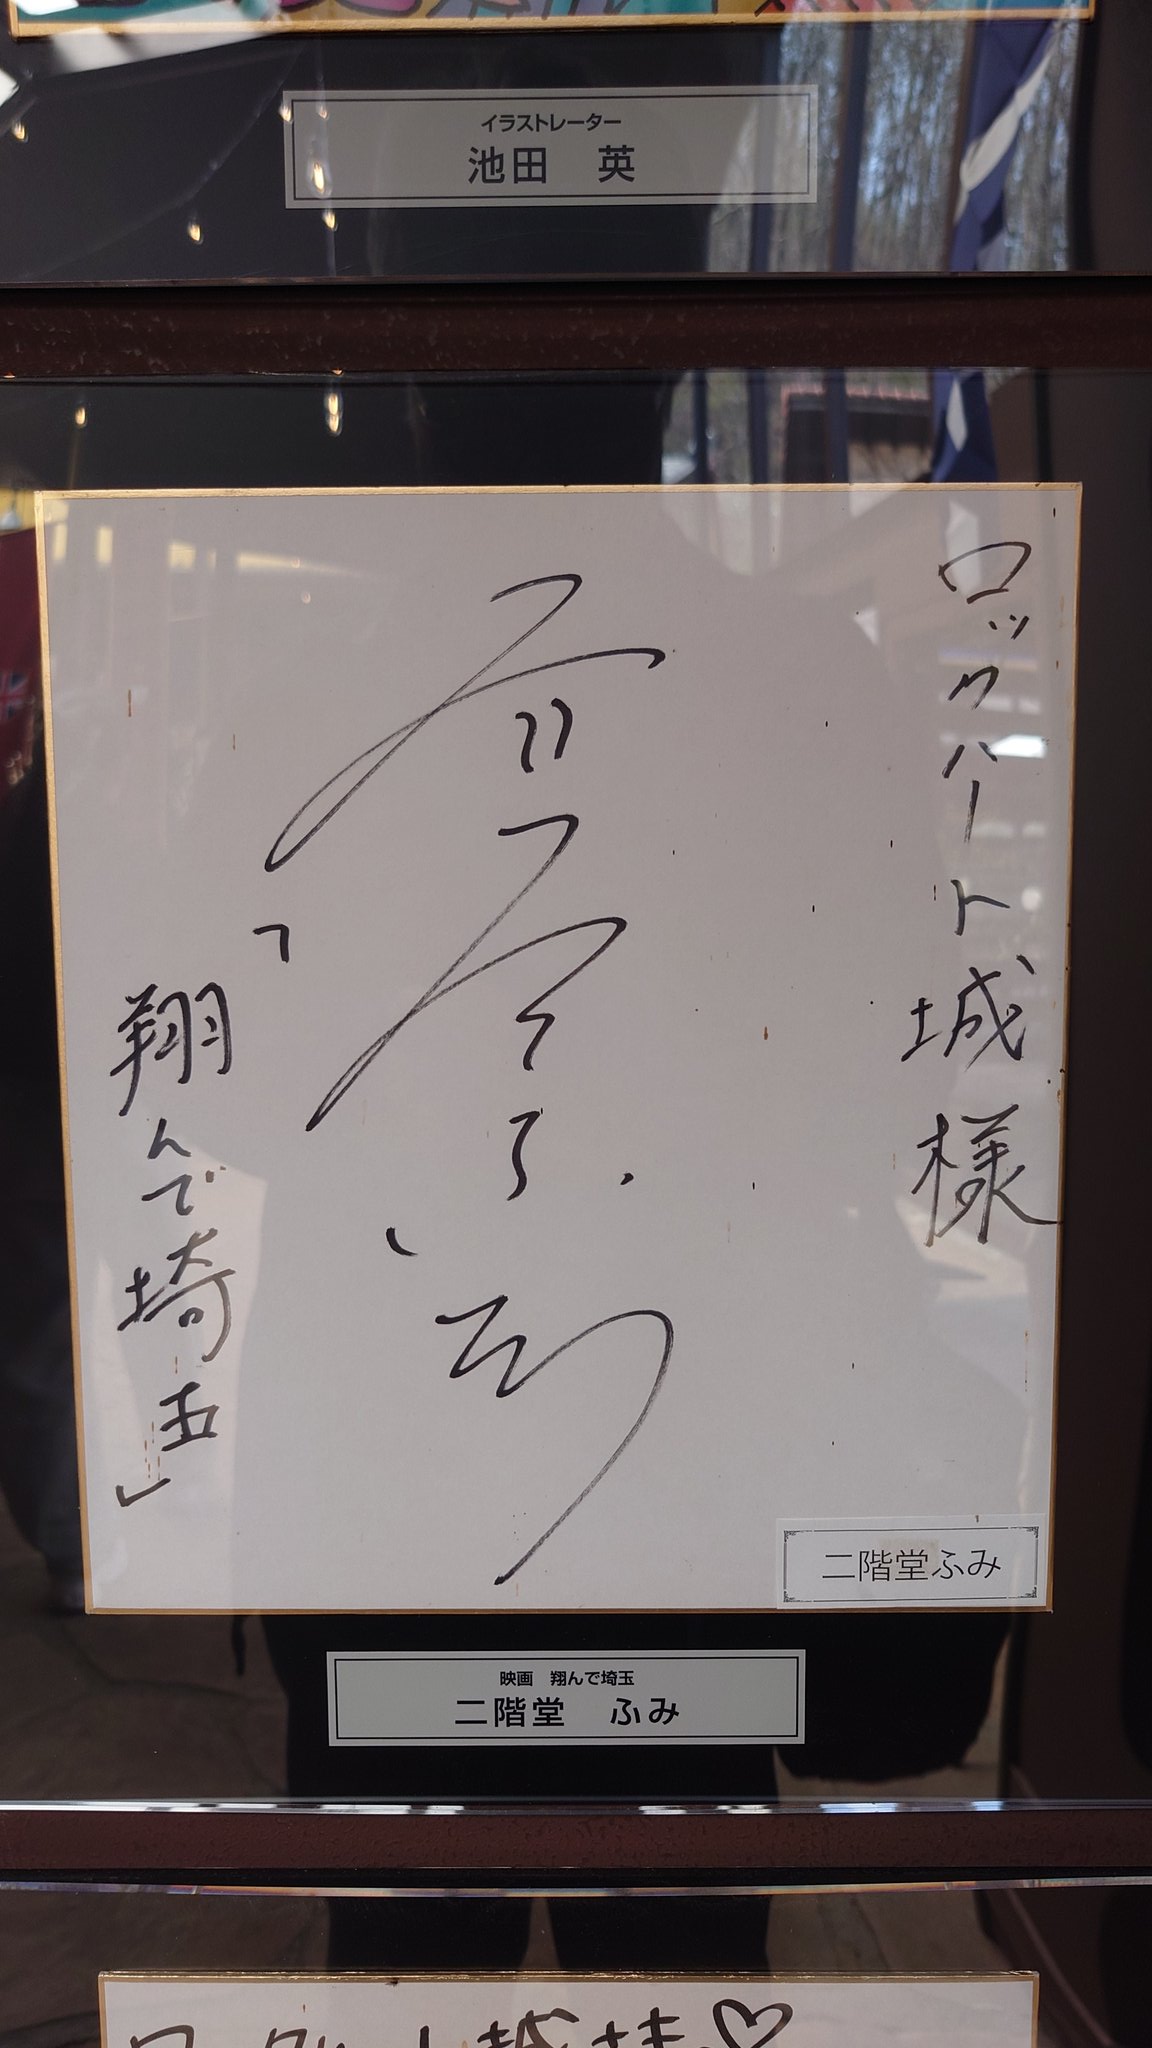 イラストレーター
池田 英
ロックハート城様
「翔んで埼玉」
二階堂ふみ
映画 翔んで埼玉
二階堂 ふみ